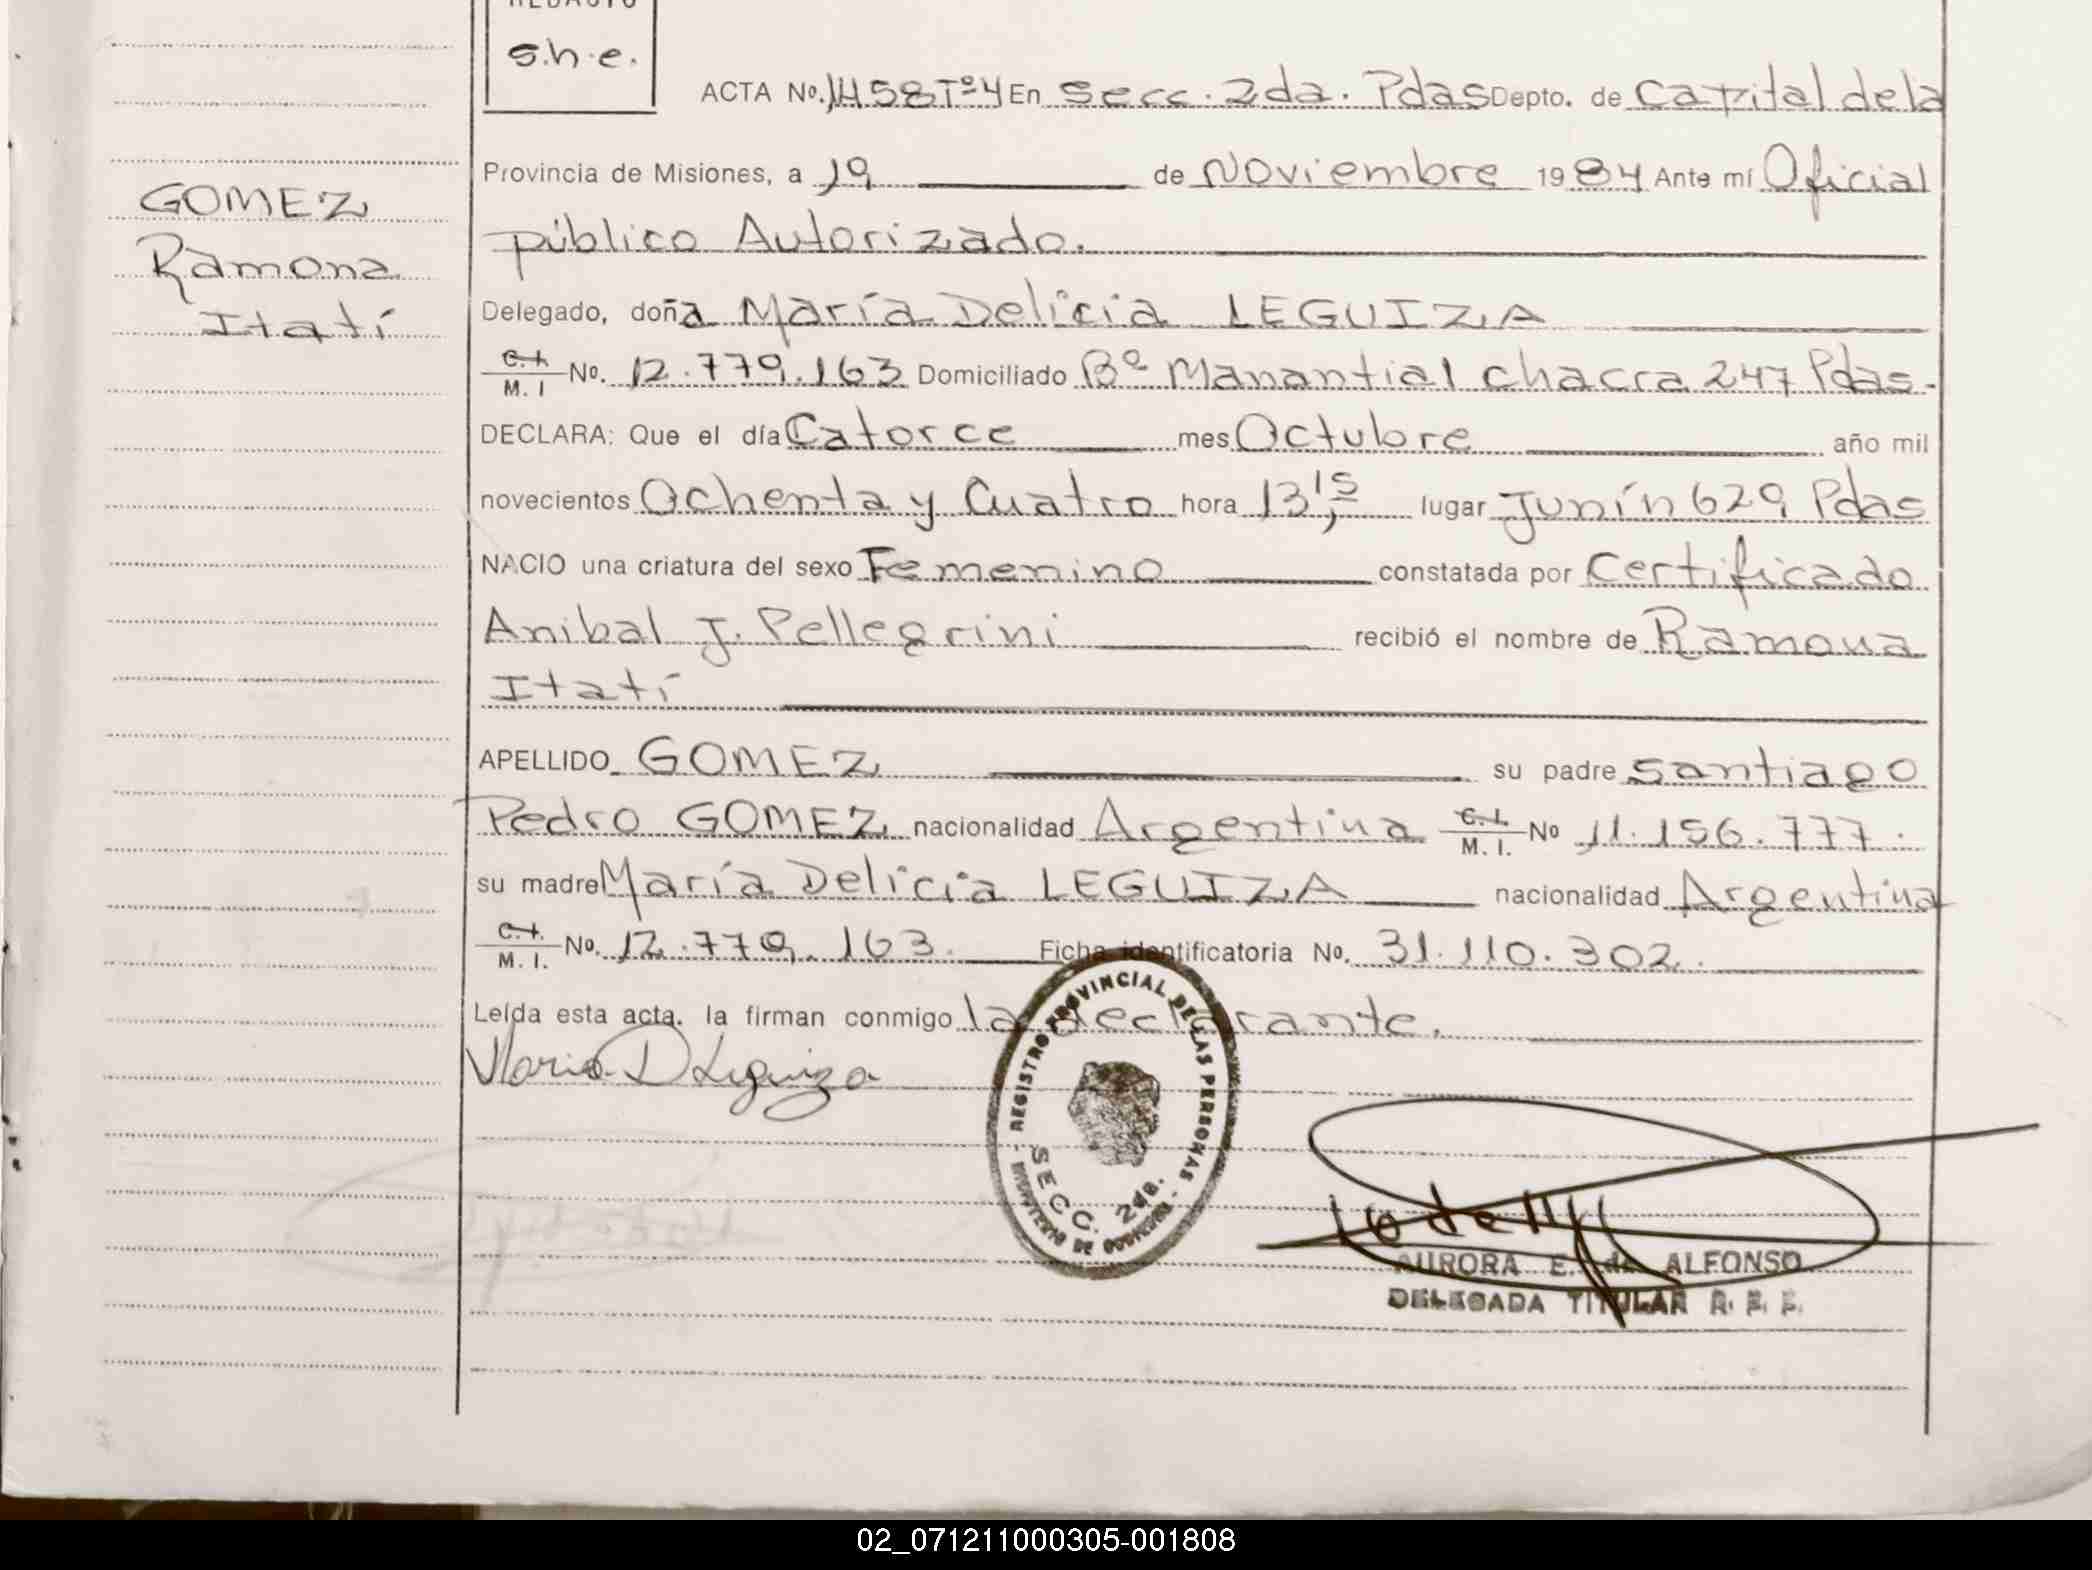 REDACTO
s.h.e.
ACTA No. 1458 Tº4 En Secc. 2da. Pdas Depto. de Capital de la
Provincia de Misiones, a 19 de Noviembre 1984 Ante mí Oficial
público Autorizado.
Delegado, doña María Delicia LEGUIZA
C.I. M. I No. 12.779.163 Domiciliado Bº Manantial chacra 247 Pdas.
DECLARA: Que el día Catorce mes Octubre año mil
novecientos Ochenta y Cuatro hora 13,15 lugar Junín 629 Pdas
NACIO una criatura del sexo Femenino constatada por Certificado
Anibal J. Pellegrini recibió el nombre de Ramona
Itatí
APELLIDO GOMEZ su padre Santiago
Pedro GOMEZ nacionalidad Argentina C.I. M. I. No 11.156.777.
su madre María Delicia LEGUIZA nacionalidad Argentina
C.I. M. I. No. 12.779.163. Ficha identificatoria No. 31.110.302.
Leída esta acta. la firman conmigo la declarante.
Maria D Leguiza
GOMEZ
Ramona
Itatí
REGISTRO PROVINCIAL DE LAS PERSONAS - MINISTERIO DE GOBIERNO -
SECC. 2da.
AURORA E. de ALFONSO
DELEGADA TITULAR
02_071211000305-001808